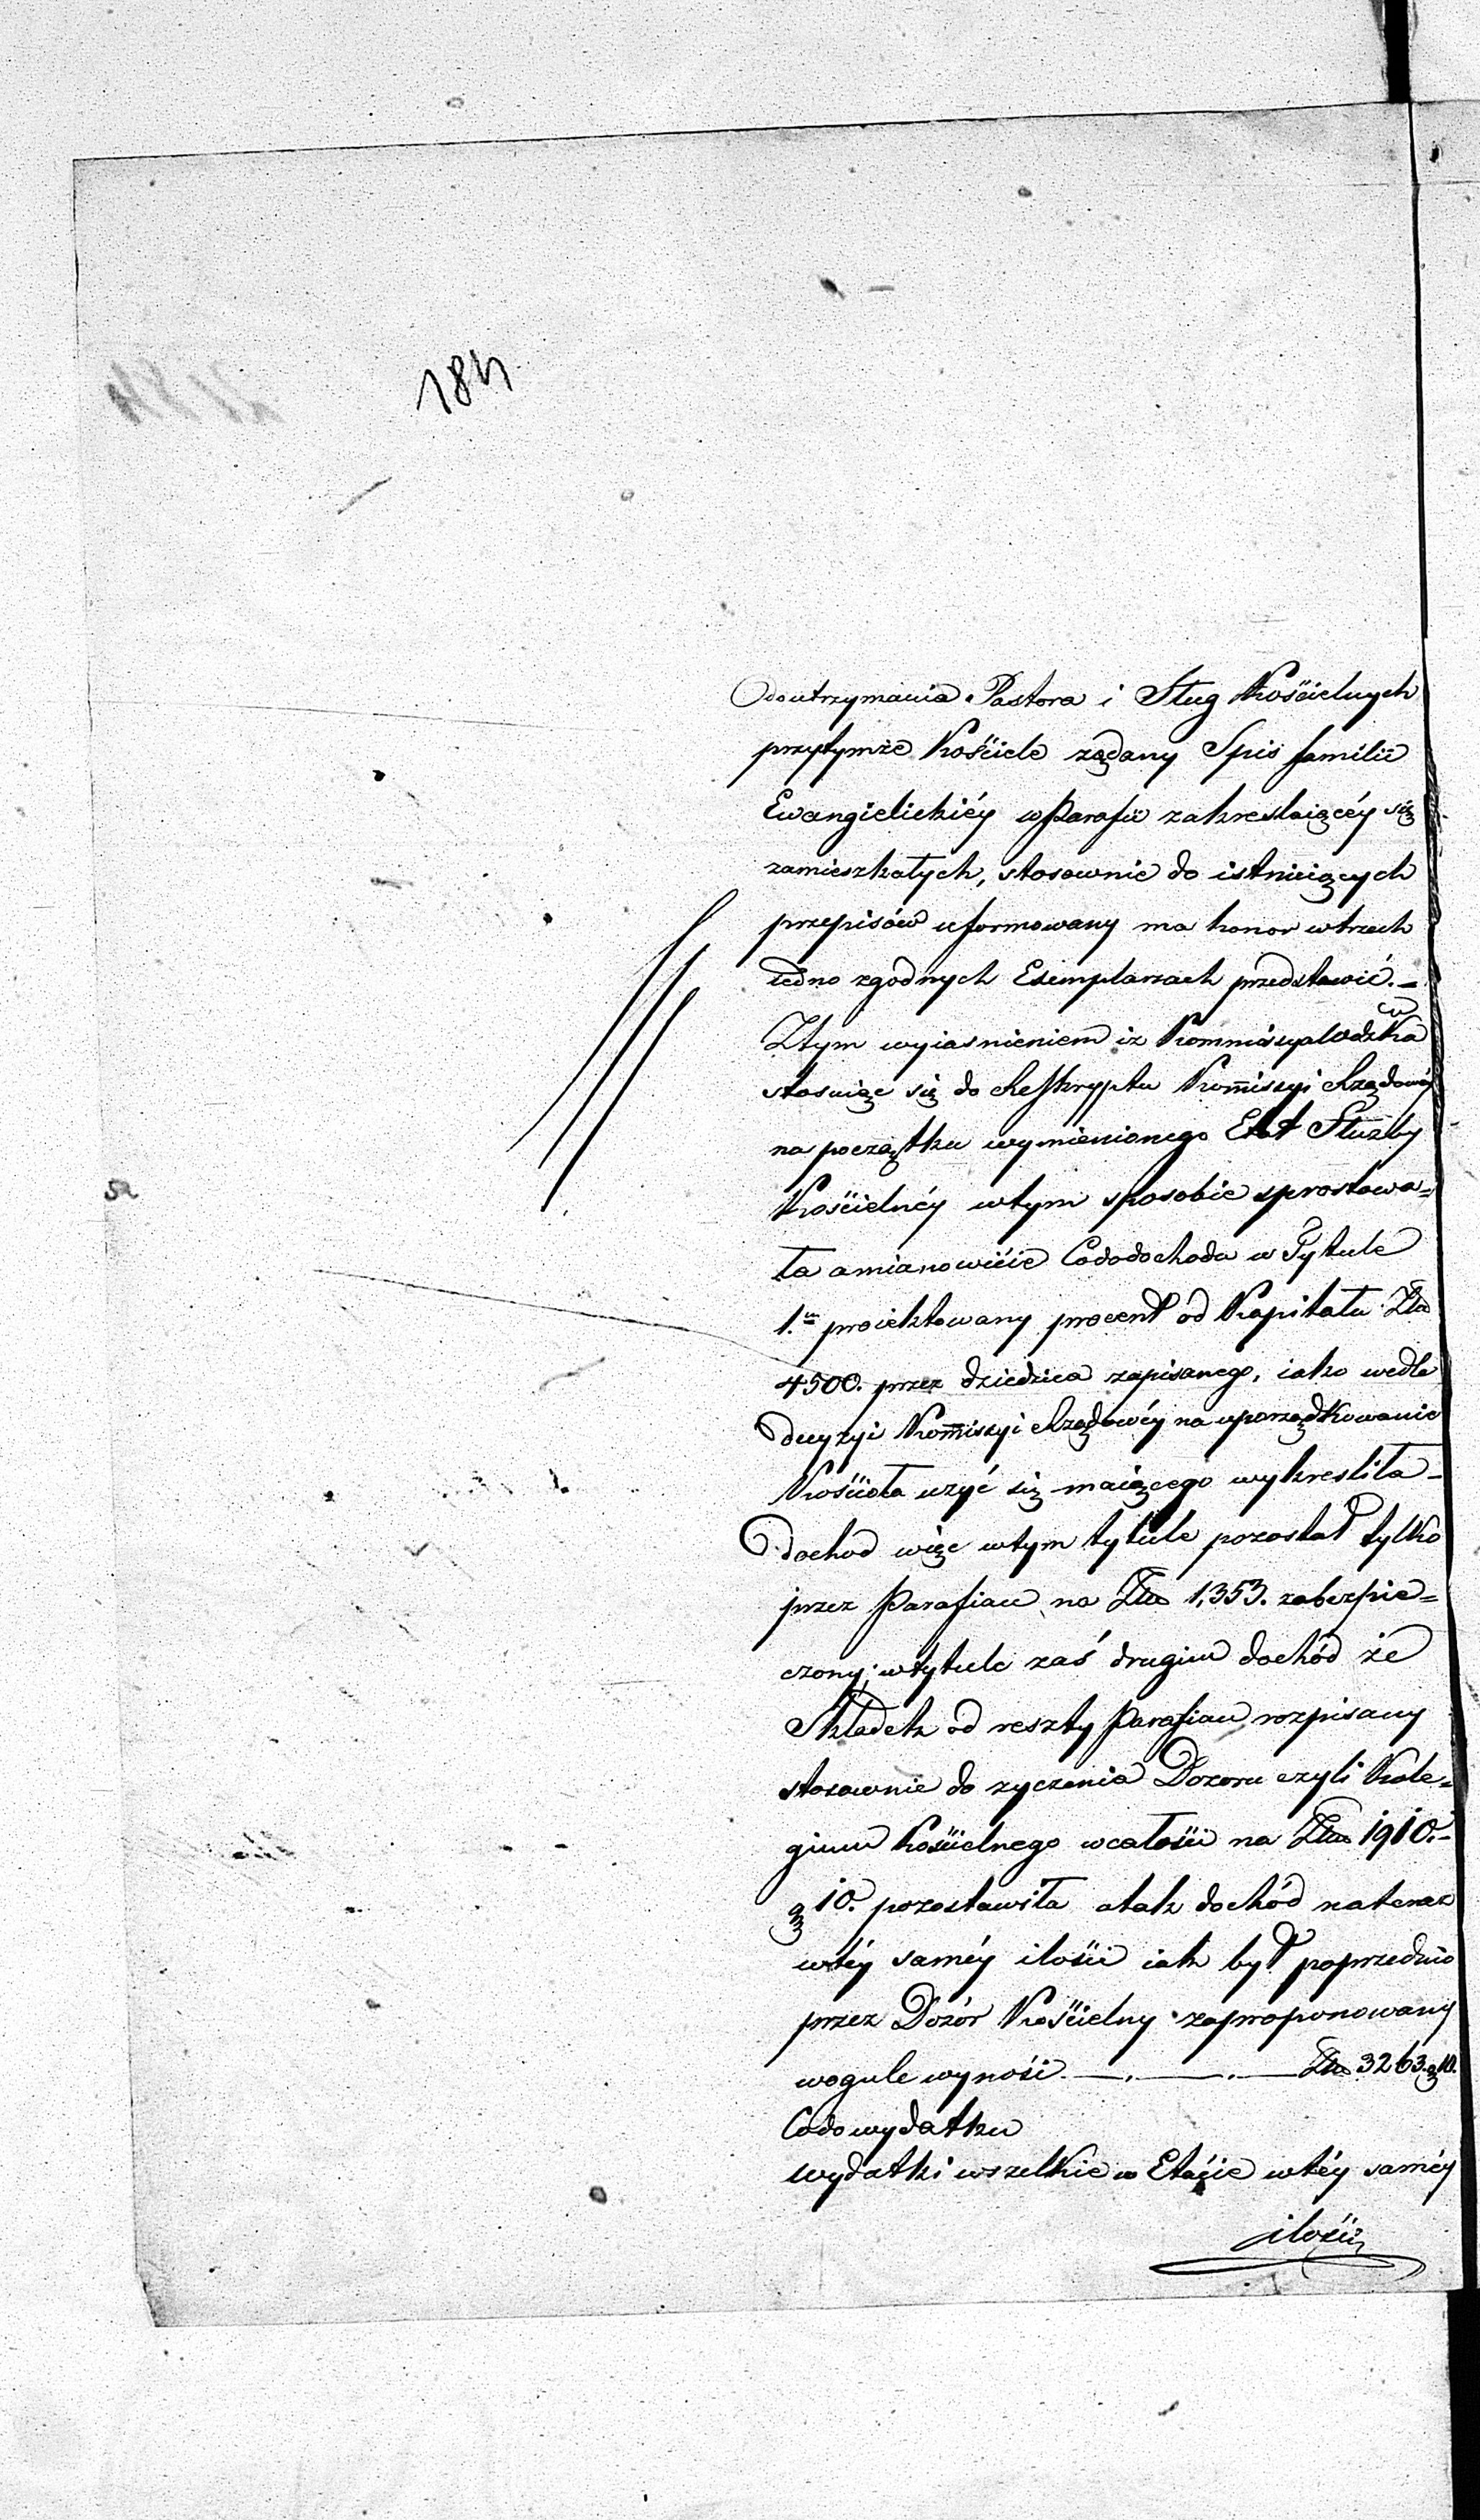 184
do utrzymania Pastora i Sług Kościelnych
przytymże Kościele żądany Spis familii
Ewangielickiéy w Parafii zakreslaiącéy się
zamieszkałych, stosownie do istnieiących
przepisów uformowany ma honor wtrzech
iedno zgodnych Exemplarzach przedstawić.–
Ztym wyiasnieniem iż Kommissya Wdzka
stosuiąc się do Reskryptu Kom̄issyi Rządowéy
na początku wymienionego Etat Służby
Kościelnéy wtym sposobie sprostowa=
ła amianowićie Cododochodu w Tytule
1.m proiektowany procent od Kapitału Złp
4500. przez dziedzica zapisanego, iako wedle
decyzyi Kom̄issyi Rządowéy na uporządkowanie
Kościoła uzyć się maiącego wykreśliła–
dochod więc wtym tytule pozostał tylko
przez Parafian na Złp 1,353. zabezpie=
czony; wtytule zaś drugim dochód ze
Składek od reszty Parafian rozpisany
stosownie do zyczenia Dozoru czyli Kole=
gium Kościelnego wcałości na Złp 1910.–
g 10. pozostawiła atak dochód nateraz
wtéy saméy ilości iak był poprzednio
przez Dozór Kościelny zaproponowany
wogule wynosi. —.—.— Złp 3263. g 10.
Codowydatku
wydatki wszelkie w Etacie wtéy saméy
ilości